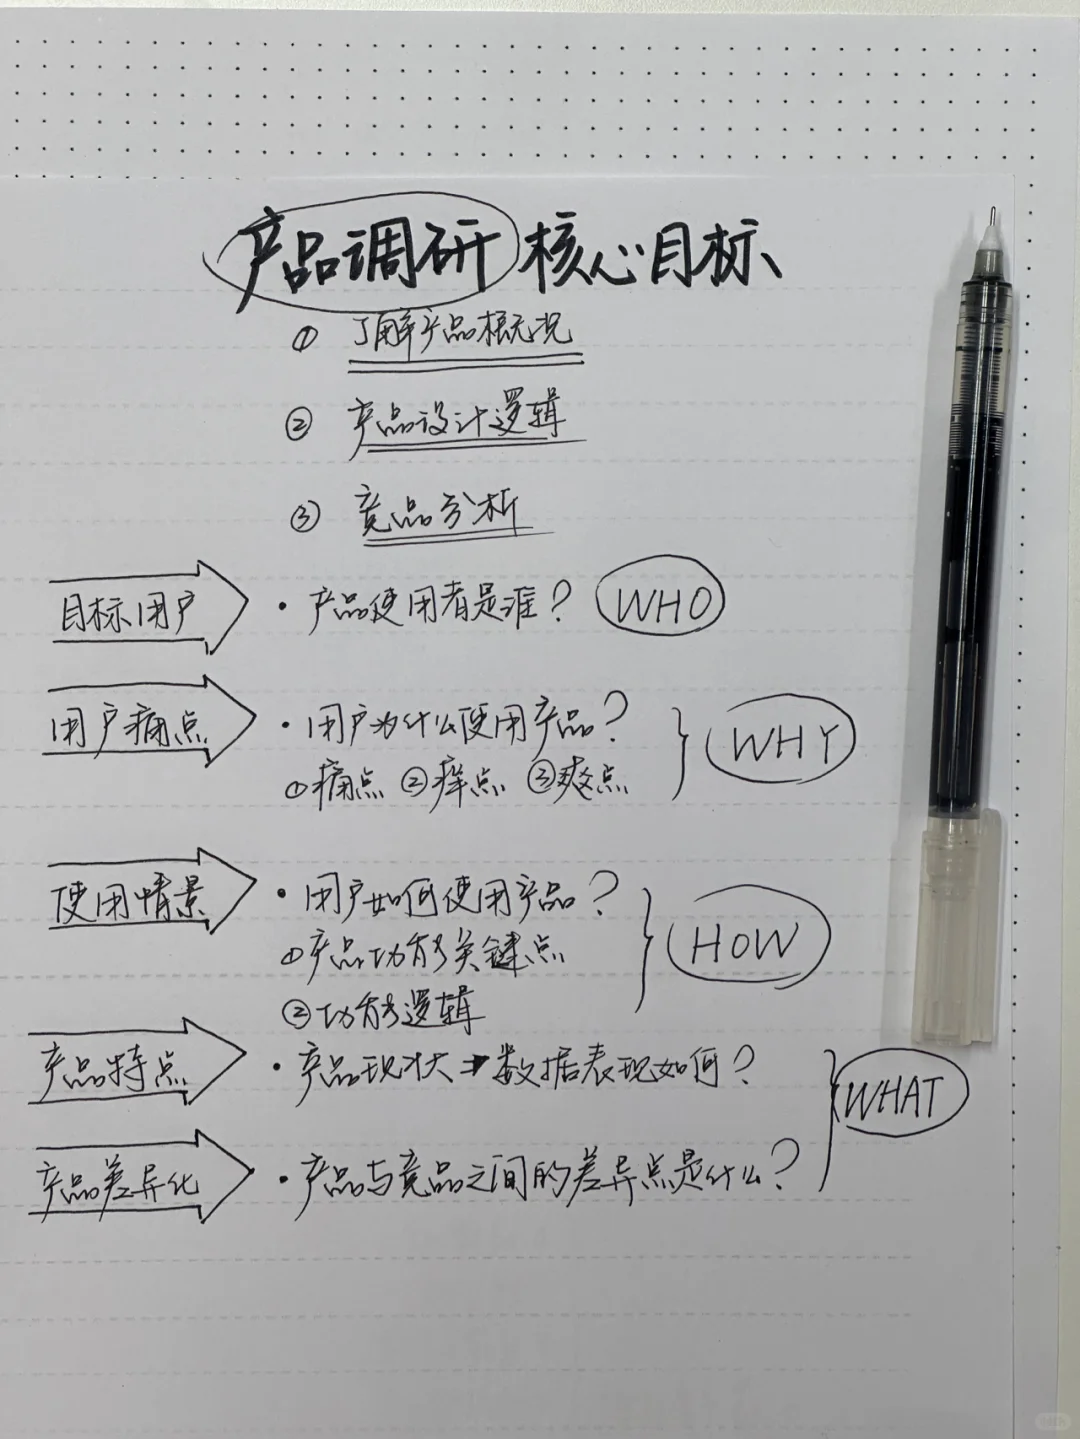 产品调研核心目标
① 了解产品概况
② 产品设计逻辑
③ 竞品分析
目标用户 · 产品使用者是谁? WHO
用户痛点 · 用户为什么使用产品? WHY
①痛点 ②痒点 ③爽点
使用情景 · 用户如何使用产品? HOW
①产品功能关键点
②功能逻辑
产品特点 · 产品现状→数据表现如何? WHAT
产品差异化 · 产品与竞品之间的差异点是什么?